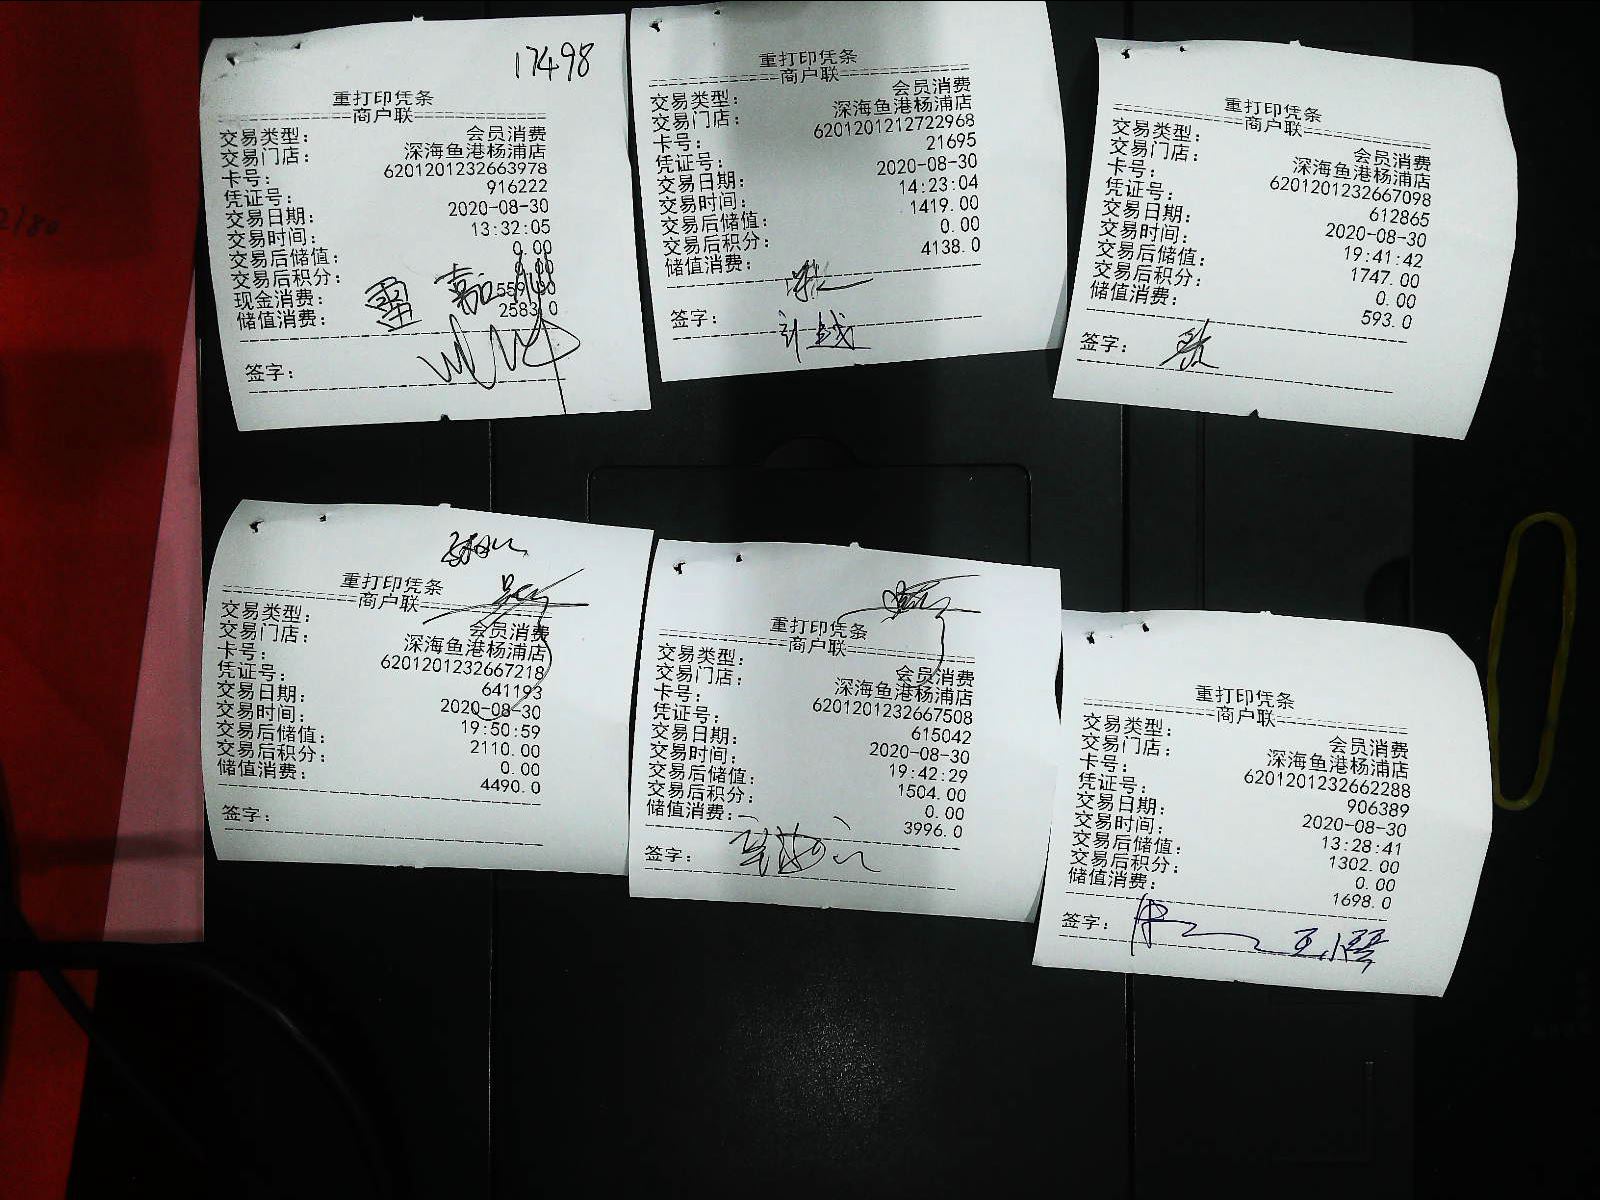 17498
重打印凭条
商户联
交易类型： 会员消费
交易门店： 深海鱼港杨浦店
卡号： 6201201232663978
凭证号： 916222
交易日期： 2020-08-30
交易时间： 13:32:05
交易后储值： 0.00
交易后积分：
现金消费：
储值消费： 2583.0
签字：
重打印凭条
商户联
交易类型： 会员消费
交易门店： 深海鱼港杨浦店
卡号： 6201201212722968
凭证号： 21695
交易日期： 2020-08-30
交易时间： 14:23:04
交易后储值： 1419.00
交易后积分： 0.00
储值消费： 4138.0
签字：
重打印凭条
商户联
交易类型： 会员消费
交易门店： 深海鱼港杨浦店
卡号： 6201201232667098
凭证号： 612865
交易日期： 2020-08-30
交易时间： 19:41:42
交易后储值： 1747.00
交易后积分： 0.00
储值消费： 593.0
签字：
重打印凭条
商户联
交易类型： 会员消费
交易门店： 深海鱼港杨浦店
卡号： 6201201232667218
凭证号： 641193
交易日期： 2020-08-30
交易时间： 19:50:59
交易后储值： 2110.00
交易后积分： 0.00
储值消费： 4490.0
签字：
重打印凭条
商户联
交易类型： 会员消费
交易门店： 深海鱼港杨浦店
卡号： 6201201232667508
凭证号： 615042
交易日期： 2020-08-30
交易时间： 19:42:29
交易后储值： 1504.00
交易后积分： 0.00
储值消费： 3996.0
签字：
重打印凭条
商户联
交易类型： 会员消费
交易门店： 深海鱼港杨浦店
卡号： 6201201232662288
凭证号： 906389
交易日期： 2020-08-30
交易时间： 13:28:41
交易后储值： 1302.00
交易后积分： 0.00
储值消费： 1698.0
签字：